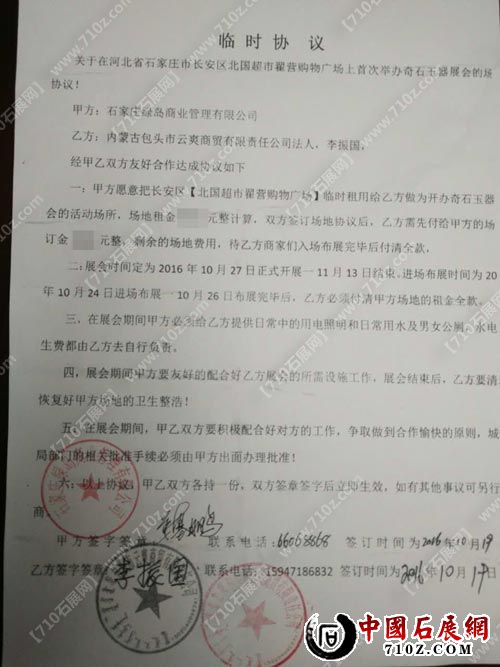 临时协议
关于在河北省石家庄市长安区北国超市翟营购物广场上首次举办奇石玉器展会的场
协议！
甲方：石家庄绿岛商业管理有限公司
乙方：内蒙古包头市云爽商贸有限责任公司法人，李振国，
经甲乙双方友好合作达成协议如下
一：甲方愿意把长安区【北国超市翟营购物广场】临时租用给乙方做为开办奇石玉器
会的活动场所，场地租金 元整计算，双方签订场地协议后，乙方需先付给甲方的场
订金 元整，剩余的场地费用，待乙方商家们入场布展完毕后付清全款，
二：展会时间定为 2016 年 10 月 27 日正式开展一 11 月 13 日结束，进场布展时间为 20
年 10 月 24 日进场布展一 10 月 26 日布展完毕后，乙方必须付清甲方场地的租金全款。
三，在展会期间甲方必须给乙方提供日常中的用电照明和日常用水及男女公厕，水电
生费都由乙方去自行负责。
四，展会期间甲方要友好的配合好乙方展会的所需设施工作，展会结束后，乙方要清
恢复好甲方场地的卫生整洁！
五：在展会期间，甲乙双方要积极配合好对方的工作，争取做到合作愉快的原则，城
局部门的相关批准手续必须由甲方出面办理批准！
六：以上协议，甲乙双方各持一份，双方签章签字后立即生效，如有其他事议可另行
商。
甲方签字签章 联系电话：66068868 签订时间为2016年10月19
乙方签字签章 李振国 联系电话：15947186832 签订时间为2016年10月19日
【710石展网】www.710z.com
中國石展网
710z.com